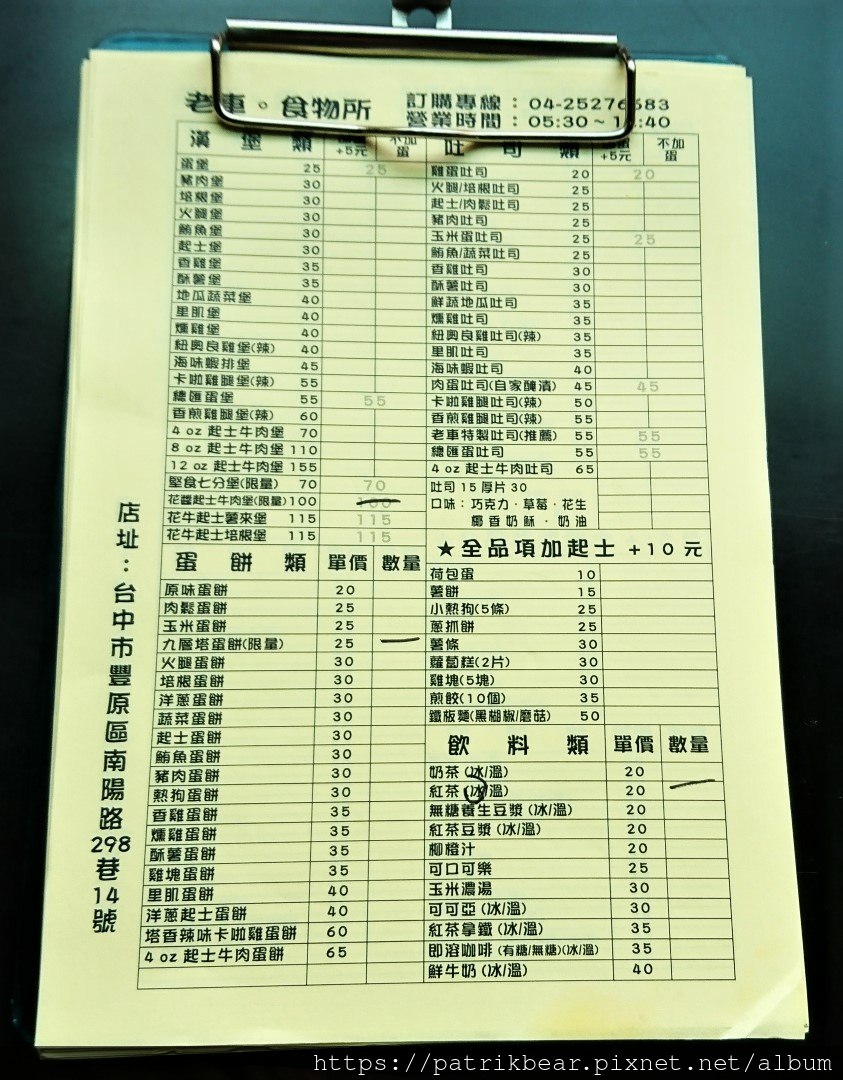 老車。食物所
訂購專線：04-25276683
營業時間：05:30~1 :40
漢堡類 +5元 不加蛋
蛋堡 25 25
豬肉堡 30
培根堡 30
火腿堡 30
鮪魚堡 30
起士堡 30
香雞堡 35
酥薯堡 35
地瓜蔬菜堡 40
里肌堡 40
燻雞堡 40
紐奧良雞堡(辣) 40
海味蝦排堡 45
卡啦雞腿堡(辣) 55
總匯蛋堡 55 55
香煎雞腿堡(辣) 60
4 oz 起士牛肉堡 70
8 oz 起士牛肉堡 110
12 oz 起士牛肉堡 155
堅食七分堡(限量) 70 70
花醬起士牛肉堡(限量) 100 100
花牛起士薯來堡 115 115
花牛起士培根堡 115 115
吐司類 +5元 不加蛋
雞蛋吐司 20 20
火腿/培根吐司 25
起士/肉鬆吐司 25
豬肉吐司 25
玉米蛋吐司 25 25
鮪魚/蔬菜吐司 25
香雞吐司 30
酥薯吐司 30
鮮蔬地瓜吐司 35
燻雞吐司 35
紐奧良雞吐司(辣) 35
里肌吐司 35
海味蝦吐司 40
肉蛋吐司(自家醃漬) 45 45
卡啦雞腿吐司(辣) 50
香煎雞腿吐司(辣) 55
老車特製吐司(推薦) 55 55
總匯蛋吐司 55 55
4 oz 起士牛肉吐司 65
吐司 15 厚片 30
口味：巧克力．草莓．花生
椰香奶酥．奶油
★全品項加起士 +10 元
蛋餅類 單價 數量
原味蛋餅 20
肉鬆蛋餅 25
玉米蛋餅 25
九層塔蛋餅(限量) 25
火腿蛋餅 30
培根蛋餅 30
洋蔥蛋餅 30
蔬菜蛋餅 30
起士蛋餅 30
鮪魚蛋餅 30
豬肉蛋餅 30
熱狗蛋餅 30
香雞蛋餅 35
燻雞蛋餅 35
酥薯蛋餅 35
雞塊蛋餅 35
里肌蛋餅 40
洋蔥起士蛋餅 40
塔香辣味卡啦雞蛋餅 60
4 oz 起士牛肉蛋餅 65
荷包蛋 10
薯餅 15
小熱狗(5條) 25
蔥抓餅 25
薯條 30
蘿蔔糕(2片) 30
雞塊(5塊) 30
煎餃(10個) 35
鐵板麵(黑胡椒/蘑菇) 50
飲料類 單價 數量
奶茶(冰/溫) 20
紅茶(冰/溫) 20
無糖養生豆漿(冰/溫) 20
紅茶豆漿(冰/溫) 20
柳橙汁 20
可口可樂 25
玉米濃湯 30
可可亞(冰/溫) 30
紅茶拿鐵(冰/溫) 35
即溶咖啡(有糖/無糖)(冰/溫) 35
鮮牛奶(冰/溫) 40
店址：台中市豐原區南陽路298巷14號
https://patrikbear.pixnet.net/album